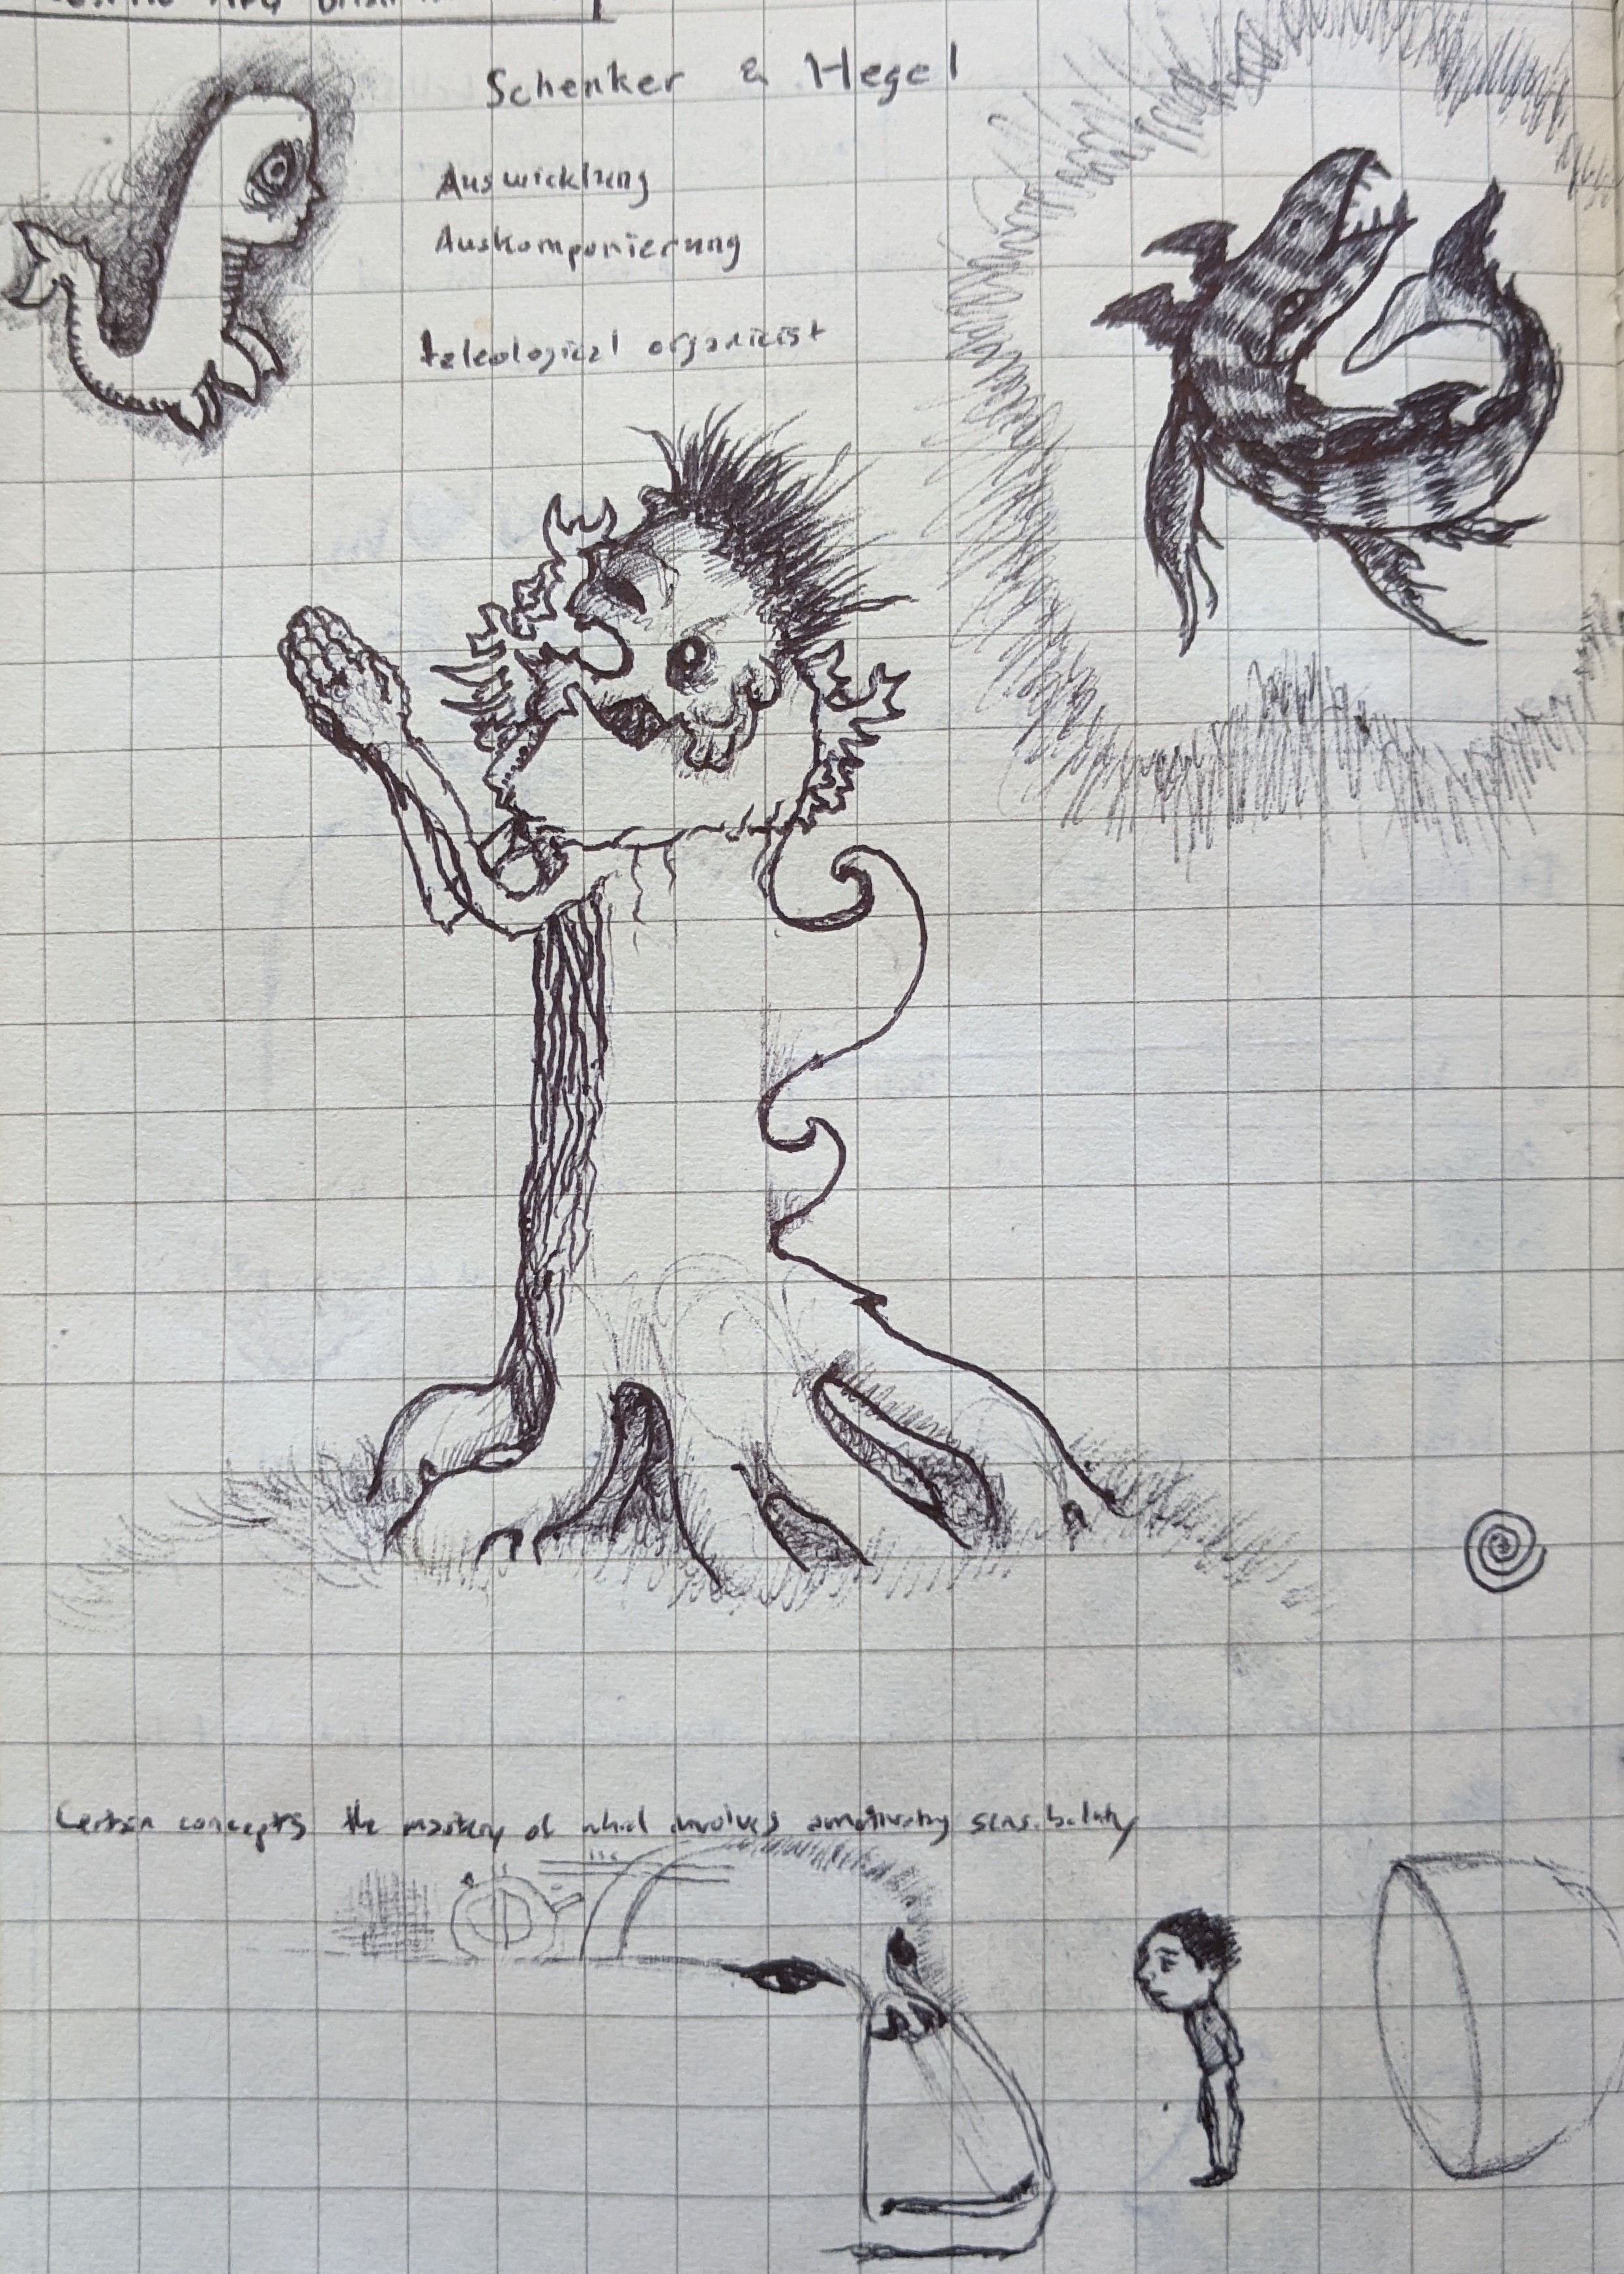 Schenker & Hegel
Auswicklung
Auskomponierung
teleological organicist
Certain concepts the mastery of which involves sensibility